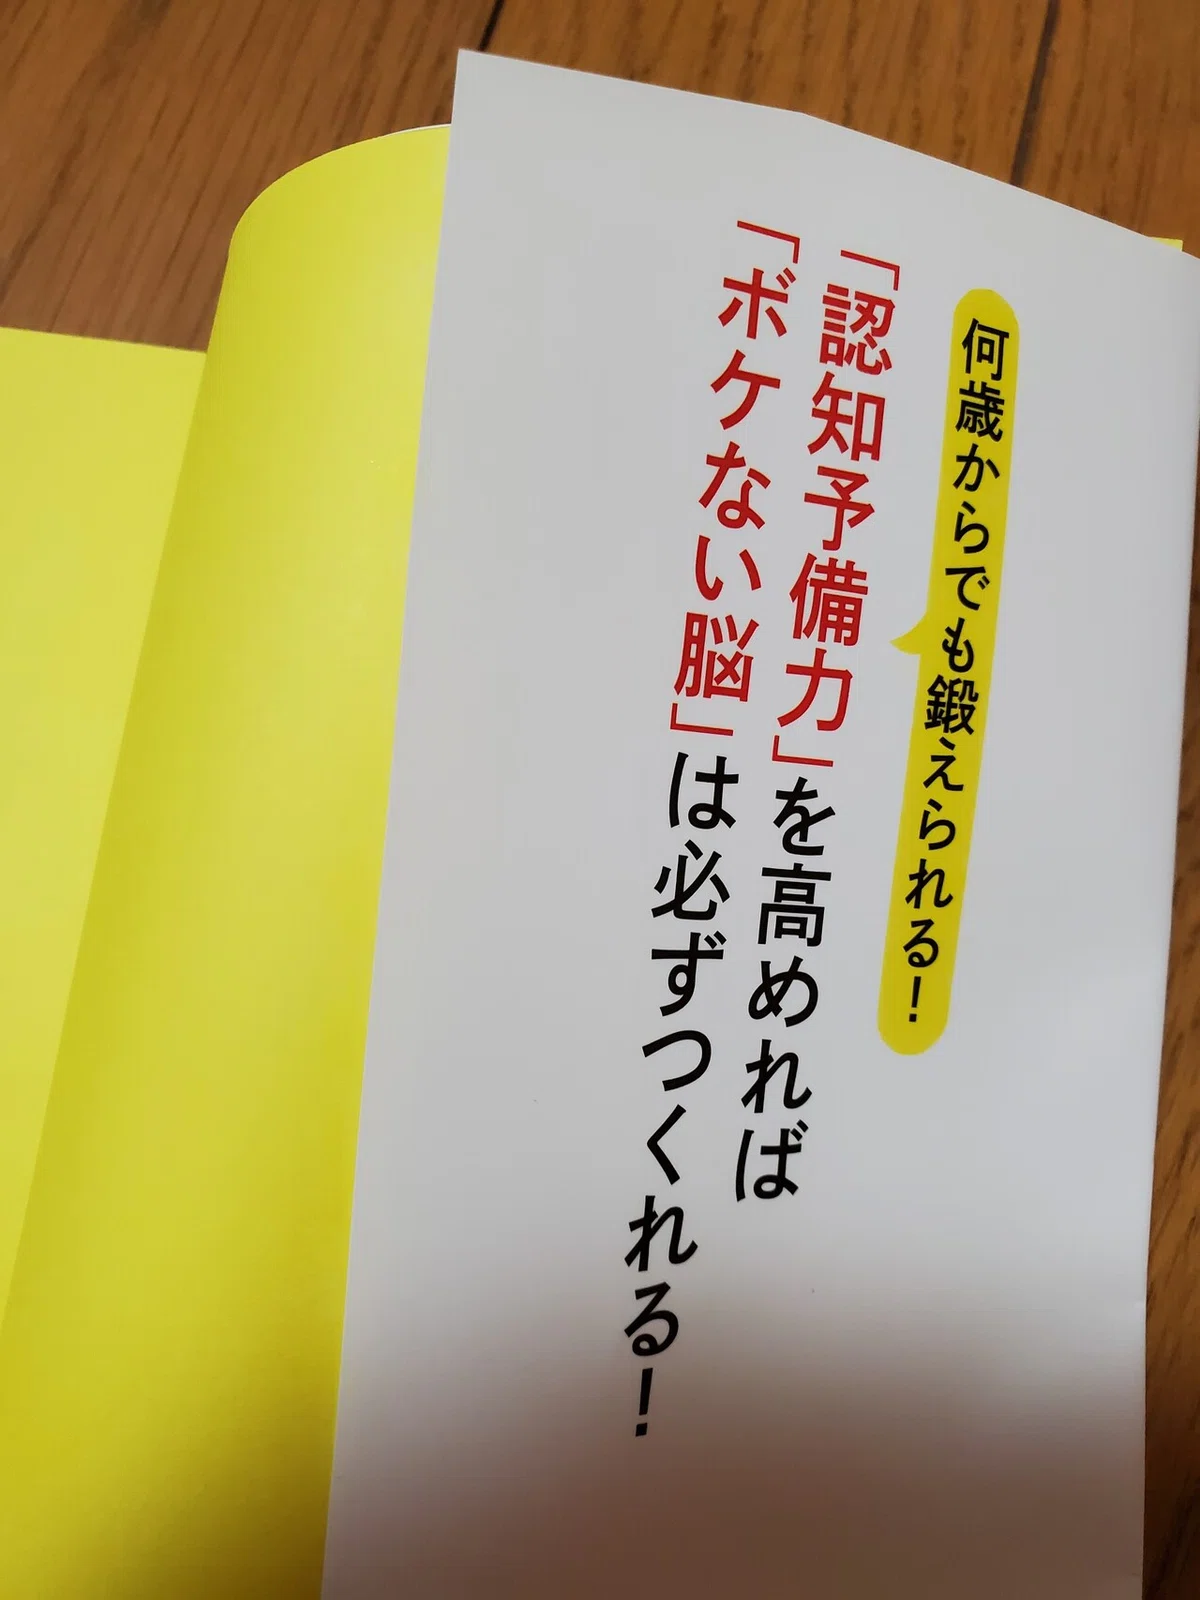 何歳からでも鍛えられる！
「認知予備力」を高めれば
「ボケない脳」は必ずつくれる！